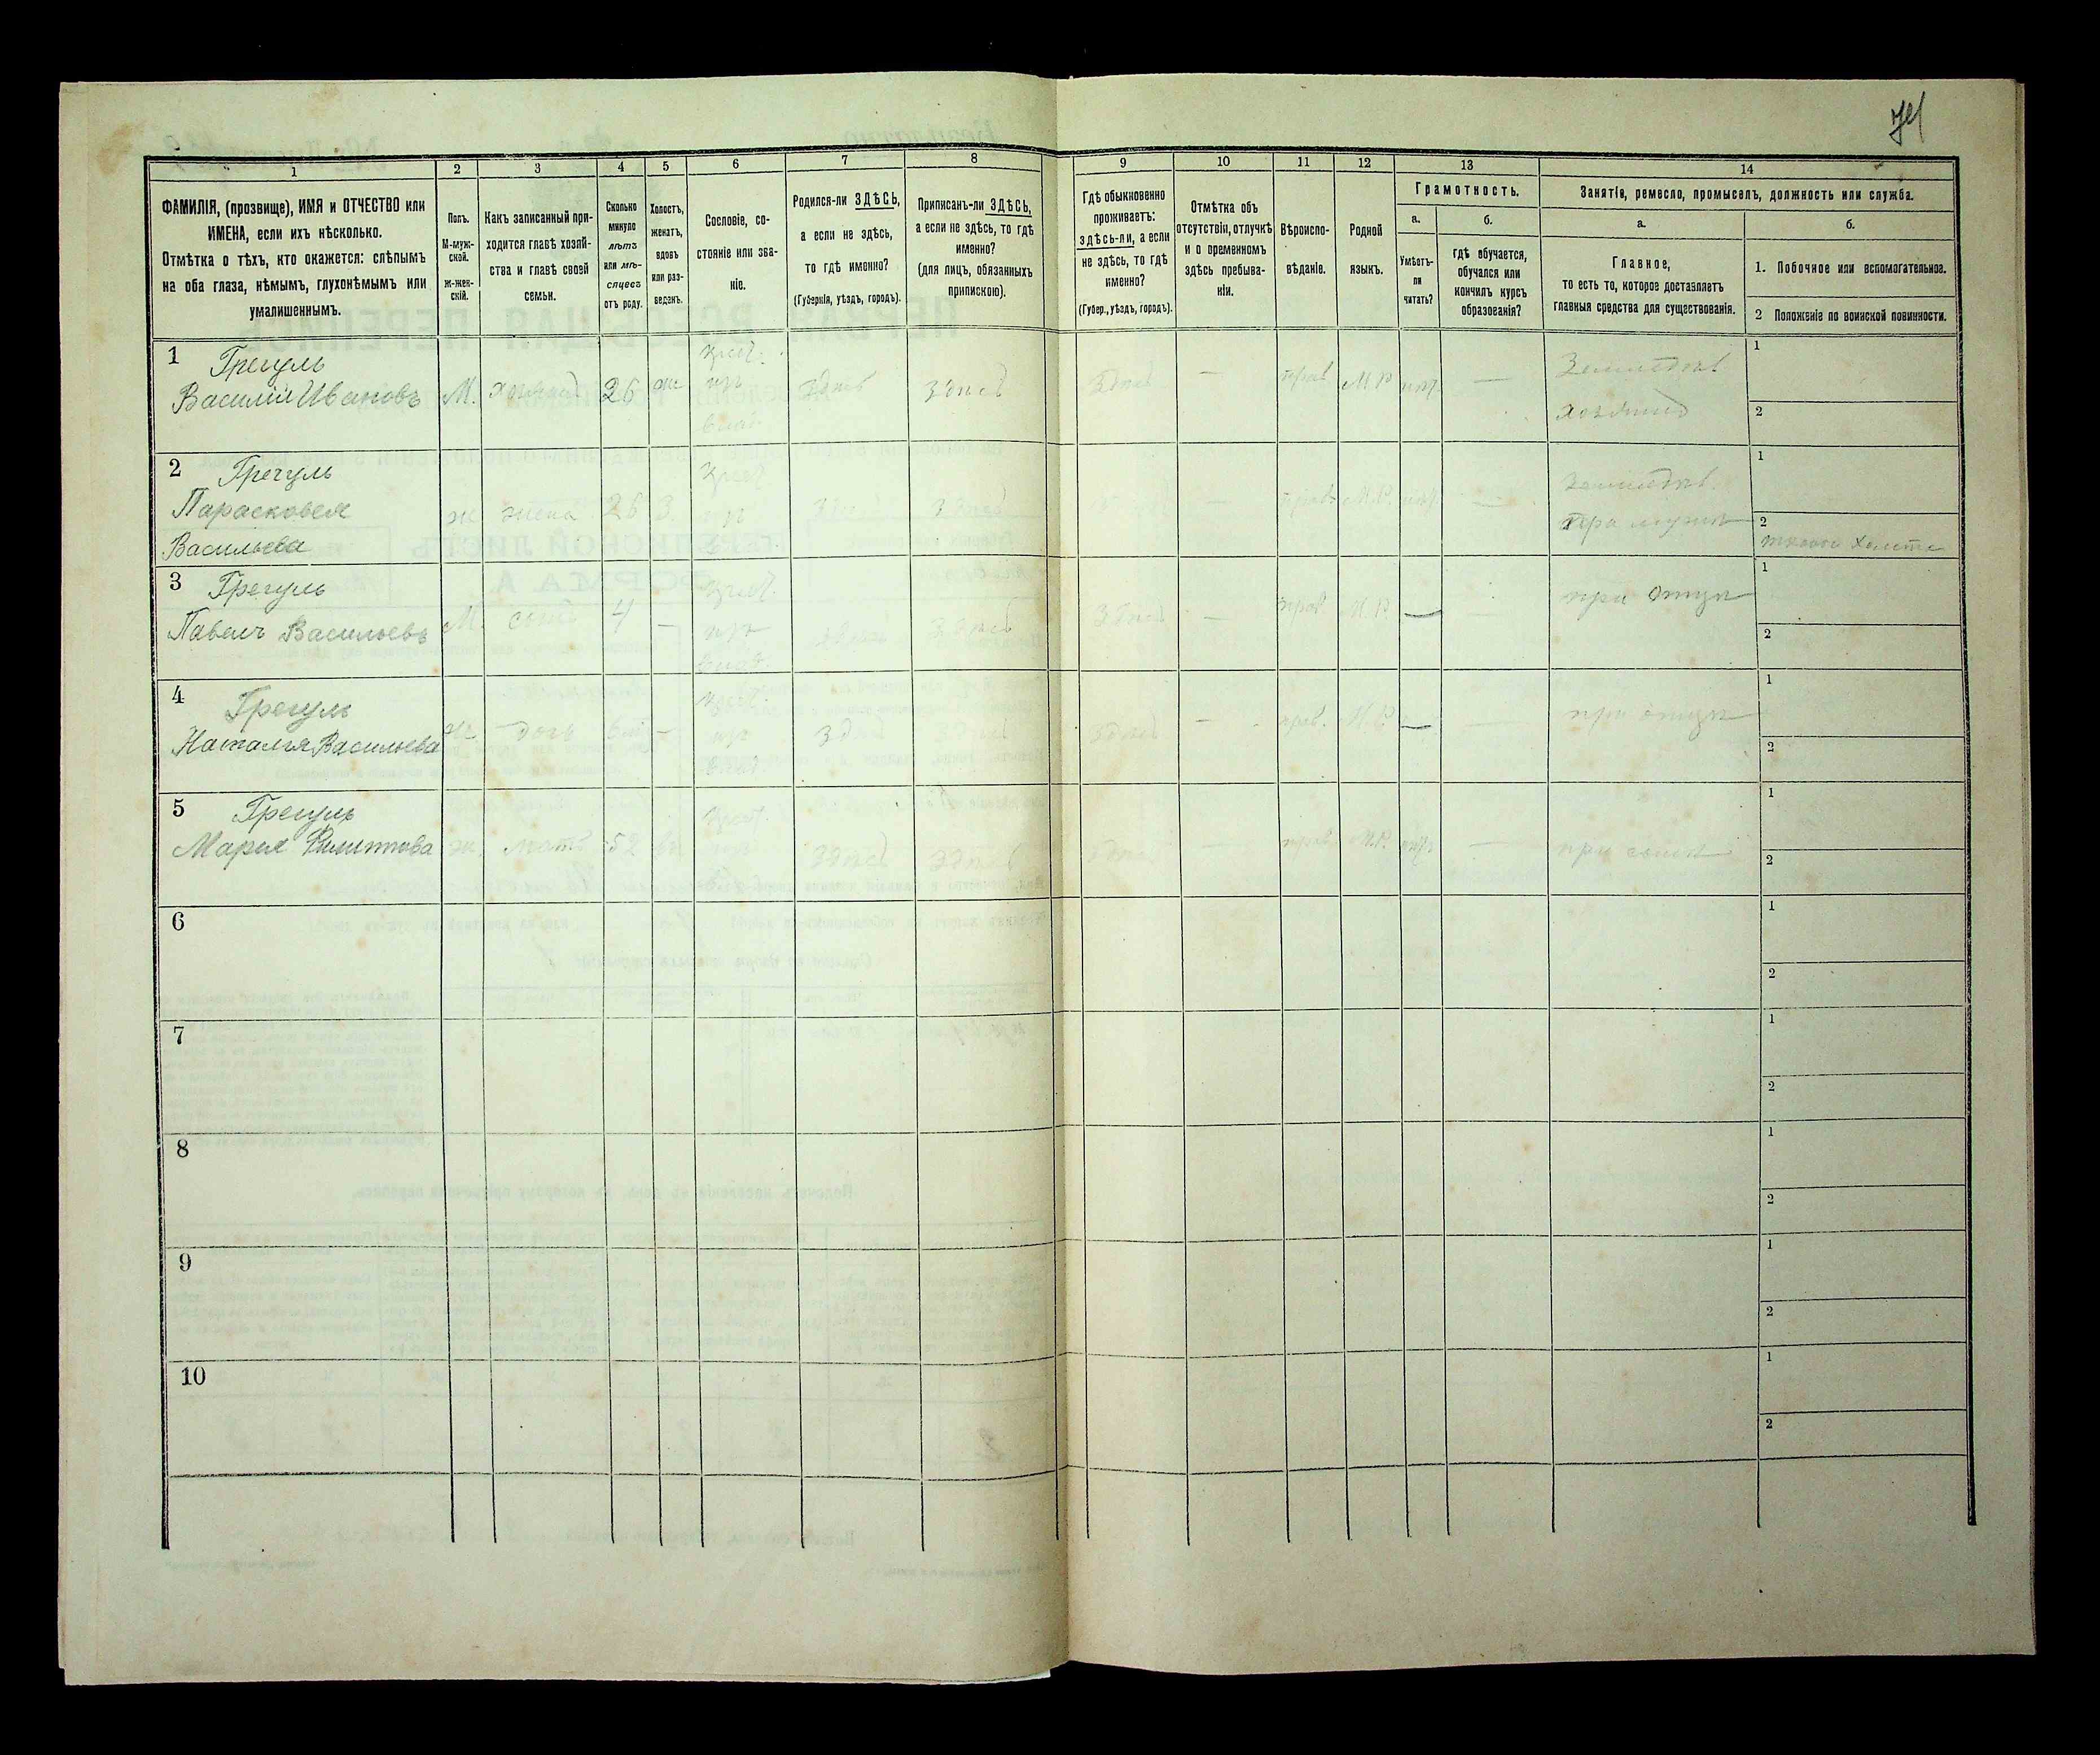 74
1
2
3
4
5
6
7
8
9
10
11
12
13
14
ФАМИЛІЯ, (прозвище), ИМЯ и ОТЧЕСТВО или
ИМЕНА, если ихъ нѣсколько.
Отмѣтка о тѣхъ, кто окажется: слѣпымъ
на оба глаза, нѣмымъ, глухонѣмымъ или
умалишеннымъ.
Полъ.
М-муж-
ской.
ж-жен-
скій.
Какъ записанный при-
ходится главѣ хозяй-
ства и главѣ своей
семьи.
Сколько
минуло
лѣтъ
или мѣ-
сяцевъ
отъ роду.
Холостъ,
женатъ,
вдовъ
или раз-
веденъ.
Сословіе, со-
стояніе или зва-
ніе.
Родился-ли ЗДѢСЬ,
а если не здѣсь,
то гдѣ именно?
(Губернія, уѣздъ, городъ).
Приписанъ-ли ЗДѢСЬ,
а если не здѣсь, то гдѣ
именно?
(для лицъ, обязанныхъ
припискою).
Гдѣ обыкновенно
проживаетъ:
здѣсь-ли, а если
не здѣсь, то гдѣ
именно?
(Губер., уѣздъ, городъ).
Отмѣтка объ
отсутствіи, отлучкѣ
и о временномъ
здѣсь пребыва-
ніи.
Вѣроиспо-
вѣданіе.
Родной
языкъ.
Грамотность.
а.
Умѣетъ-
ли
читать?
б.
гдѣ обучается,
обучался или
кончилъ курсъ
образованія?
Занятіе, ремесло, промыселъ, должность или служба.
а.
Главное,
то есть то, которое доставляетъ
главныя средства для существованія.
б.
1. Побочное или вспомогательное.
2 Положеніе по воинской повинности.
1 Грегуль
Василій Ивановъ М. хозяинъ 26 ж здѣсь здѣсь здѣсь — прав М.Р нѣт — Земледѣл
хозяинъ
1
2
2 Грегуль
Парасковея
Васильева ж жена 26 З здѣсь здѣсь — прав М.Р. нѣт — земледѣл.
при мужѣ
1
2
3 Грегуль
Павелъ Васильевъ М. сынъ 4 — здѣсь здѣсь здѣсь — прав. М.Р. — — при отцѣ
1
2
4 Грегуль
Наталья Васильева ж дочь — здѣсь здѣсь здѣсь — прав. М.Р — — при отцѣ
1
2
5 Грегуль
Марія Филиппова ж. мать 52 вд здѣсь здѣсь здѣсь — прав М.Р. нѣт — при сынѣ
1
2
6
1
2
7
1
2
8
1
2
9
1
2
10
1
2